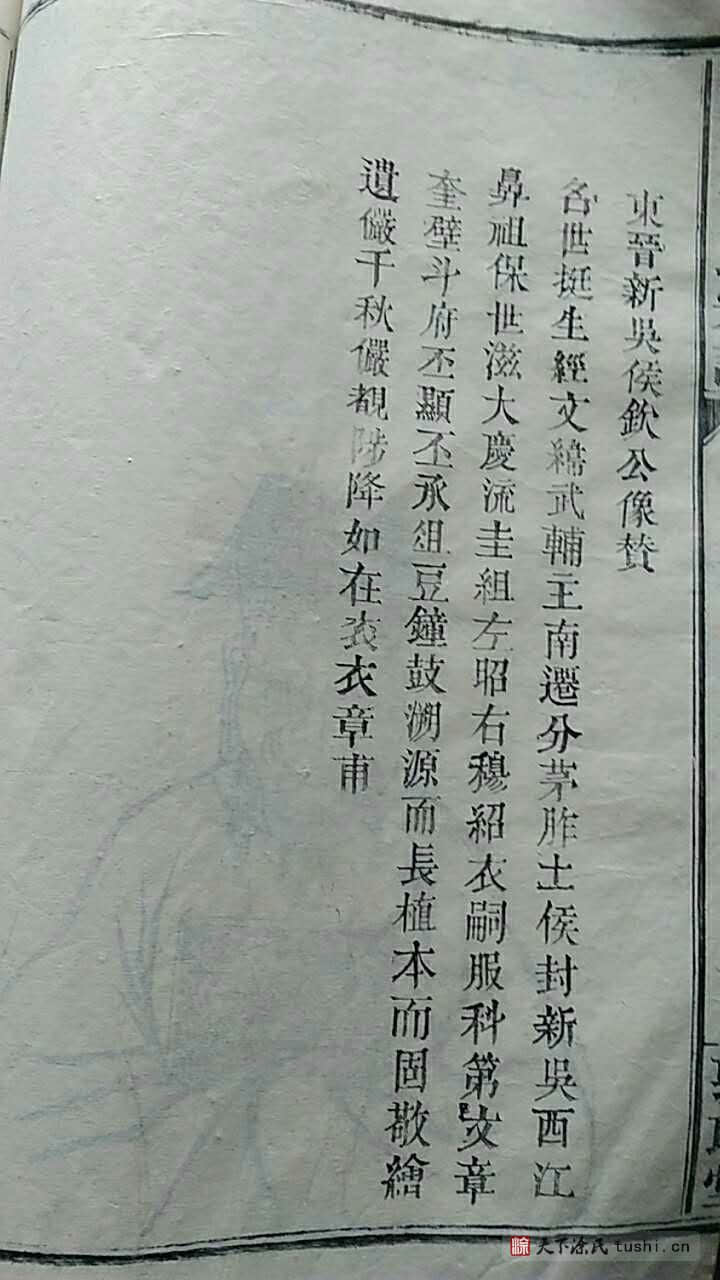 東晉新吳侯欽公像贊
名世挺生經文緯武輔主南遷分茅胙土侯封新吳西江
鼻祖保世滋大慶流圭組左昭右穆紹衣嗣服科第文章
奎壁斗府丕顯丕承俎豆鐘鼓溯源而長植本而固敬繪
遺儼千秋儼覩陟降如在衮衣章甫
天下涂氏tushi.cn